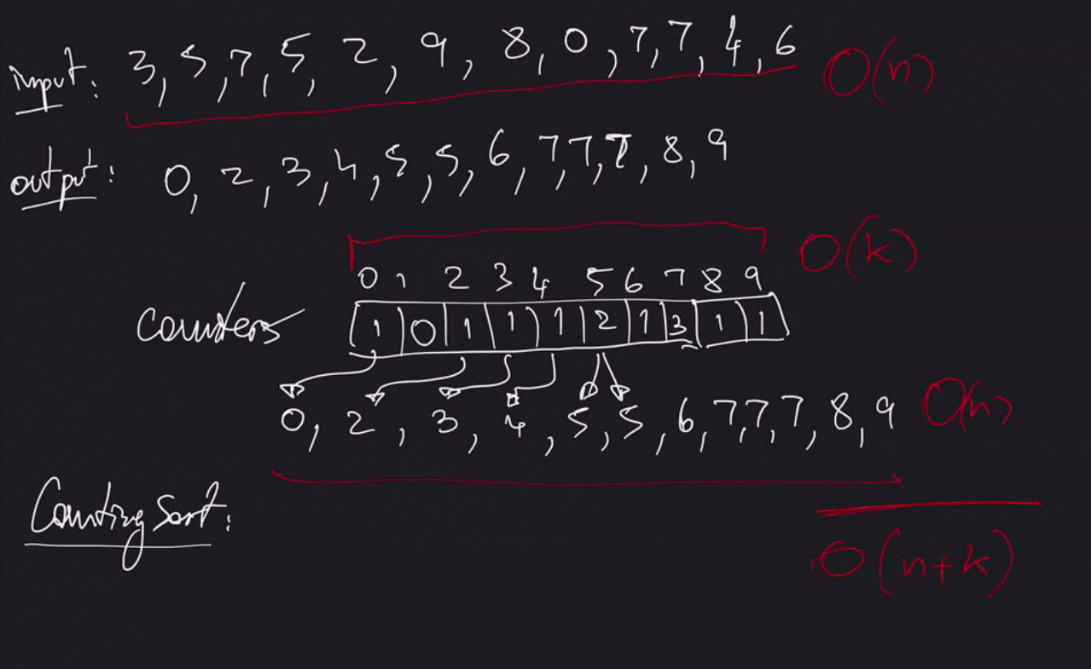 input: 3, 5, 7, 5, 2, 9, 8, 0, 7, 7, 4, 6 O(n)
output: 0, 2, 3, 4, 5, 5, 6, 7, 7, 7, 8, 9
O(k)
0 1 2 3 4 5 6 7 8 9
Counters 1 0 1 1 1 2 1 3 1 1
0, 2, 3, 4, 5, 5, 6, 7, 7, 7, 8, 9 O(n)
Counting Sort:
O(n+k)